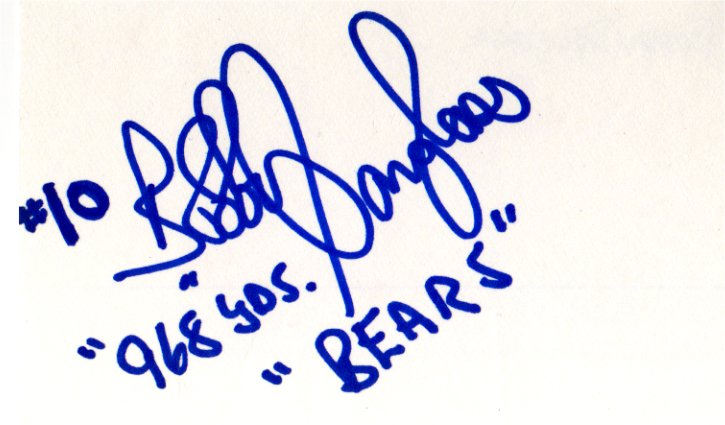 #10 Bobby Douglass
"968 YDS."
"BEARS"